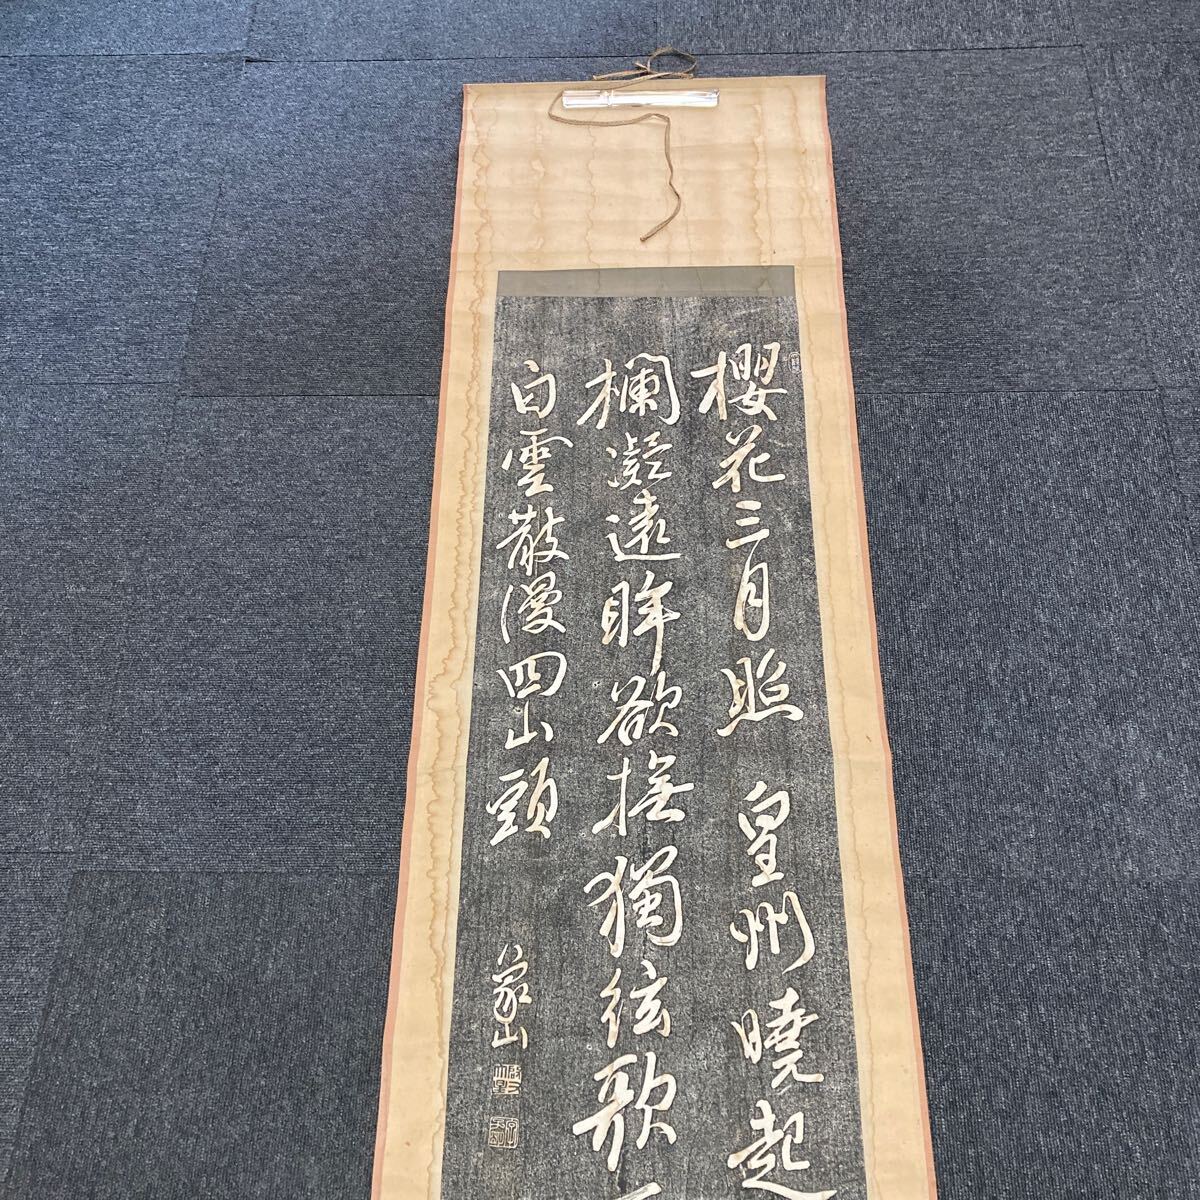 櫻花三月照 皇州曉起
欄凝遠眸欲撫獨絃歌一
白雲散漫四山頭
象山